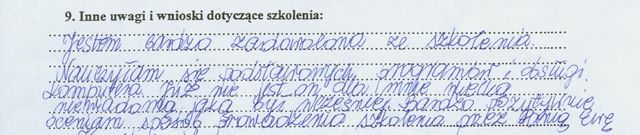 9. Inne uwagi i wnioski dotyczące szkolenia:
Jestem bardzo zadowolona ze szkolenia.
Nauczyłam się podstawowych programów i obsługi
komputera już nie jest on dla mnie wielką
niewiadomą jaką był wcześniej. Bardzo pozytywnie
oceniam sposób prowadzenia szkolenia przez Panią Ewę